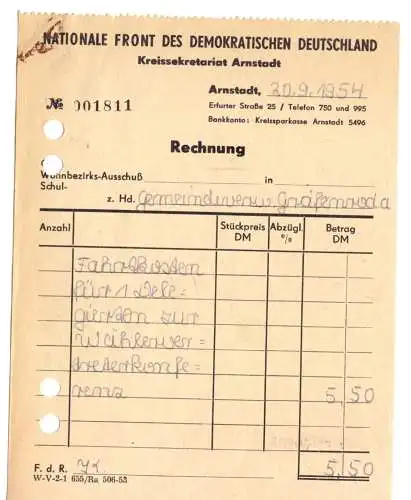 NATIONALE FRONT DES DEMOKRATISCHEN DEUTSCHLAND
Kreissekretariat Arnstadt
Arnstadt, 30.9.1954
№ 001811
Erfurter Straße 25 / Telefon 750 und 995
Bankkonto: Kreissparkasse Arnstadt 5496
Rechnung
Wohnbezirks-Ausschuß in
Schul-
z. Hd. Gemeindeverw. Gräfenroda
Anzahl Stückpreis DM Abzügl. % Betrag DM
Fahrtkosten
für 1 Dele=
gierten zur
Wählerver=
treterkonfe=
renz 5,50
F. d. R. 5,50
W-V-2-1 655/Ra 506-53